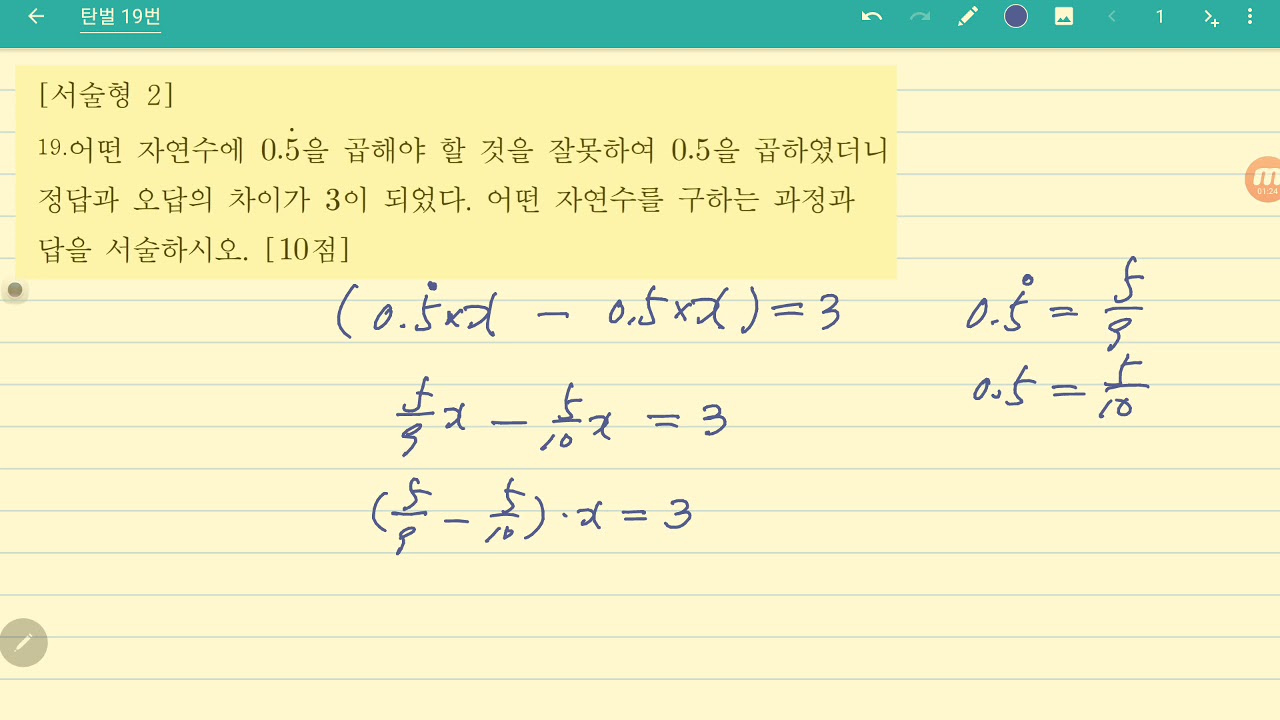 탄벌 19번
1
[서술형 2]
19.어떤 자연수에 0.5̇을 곱해야 할 것을 잘못하여 0.5을 곱하였더니
정답과 오답의 차이가 3이 되었다. 어떤 자연수를 구하는 과정과
답을 서술하시오. [10점]
01:24
(0.5̇×x - 0.5×x) = 3
0.5̇ = 5/9
0.5 = 5/10
5/9 x - 5/10 x = 3
(5/9 - 5/10)·x = 3